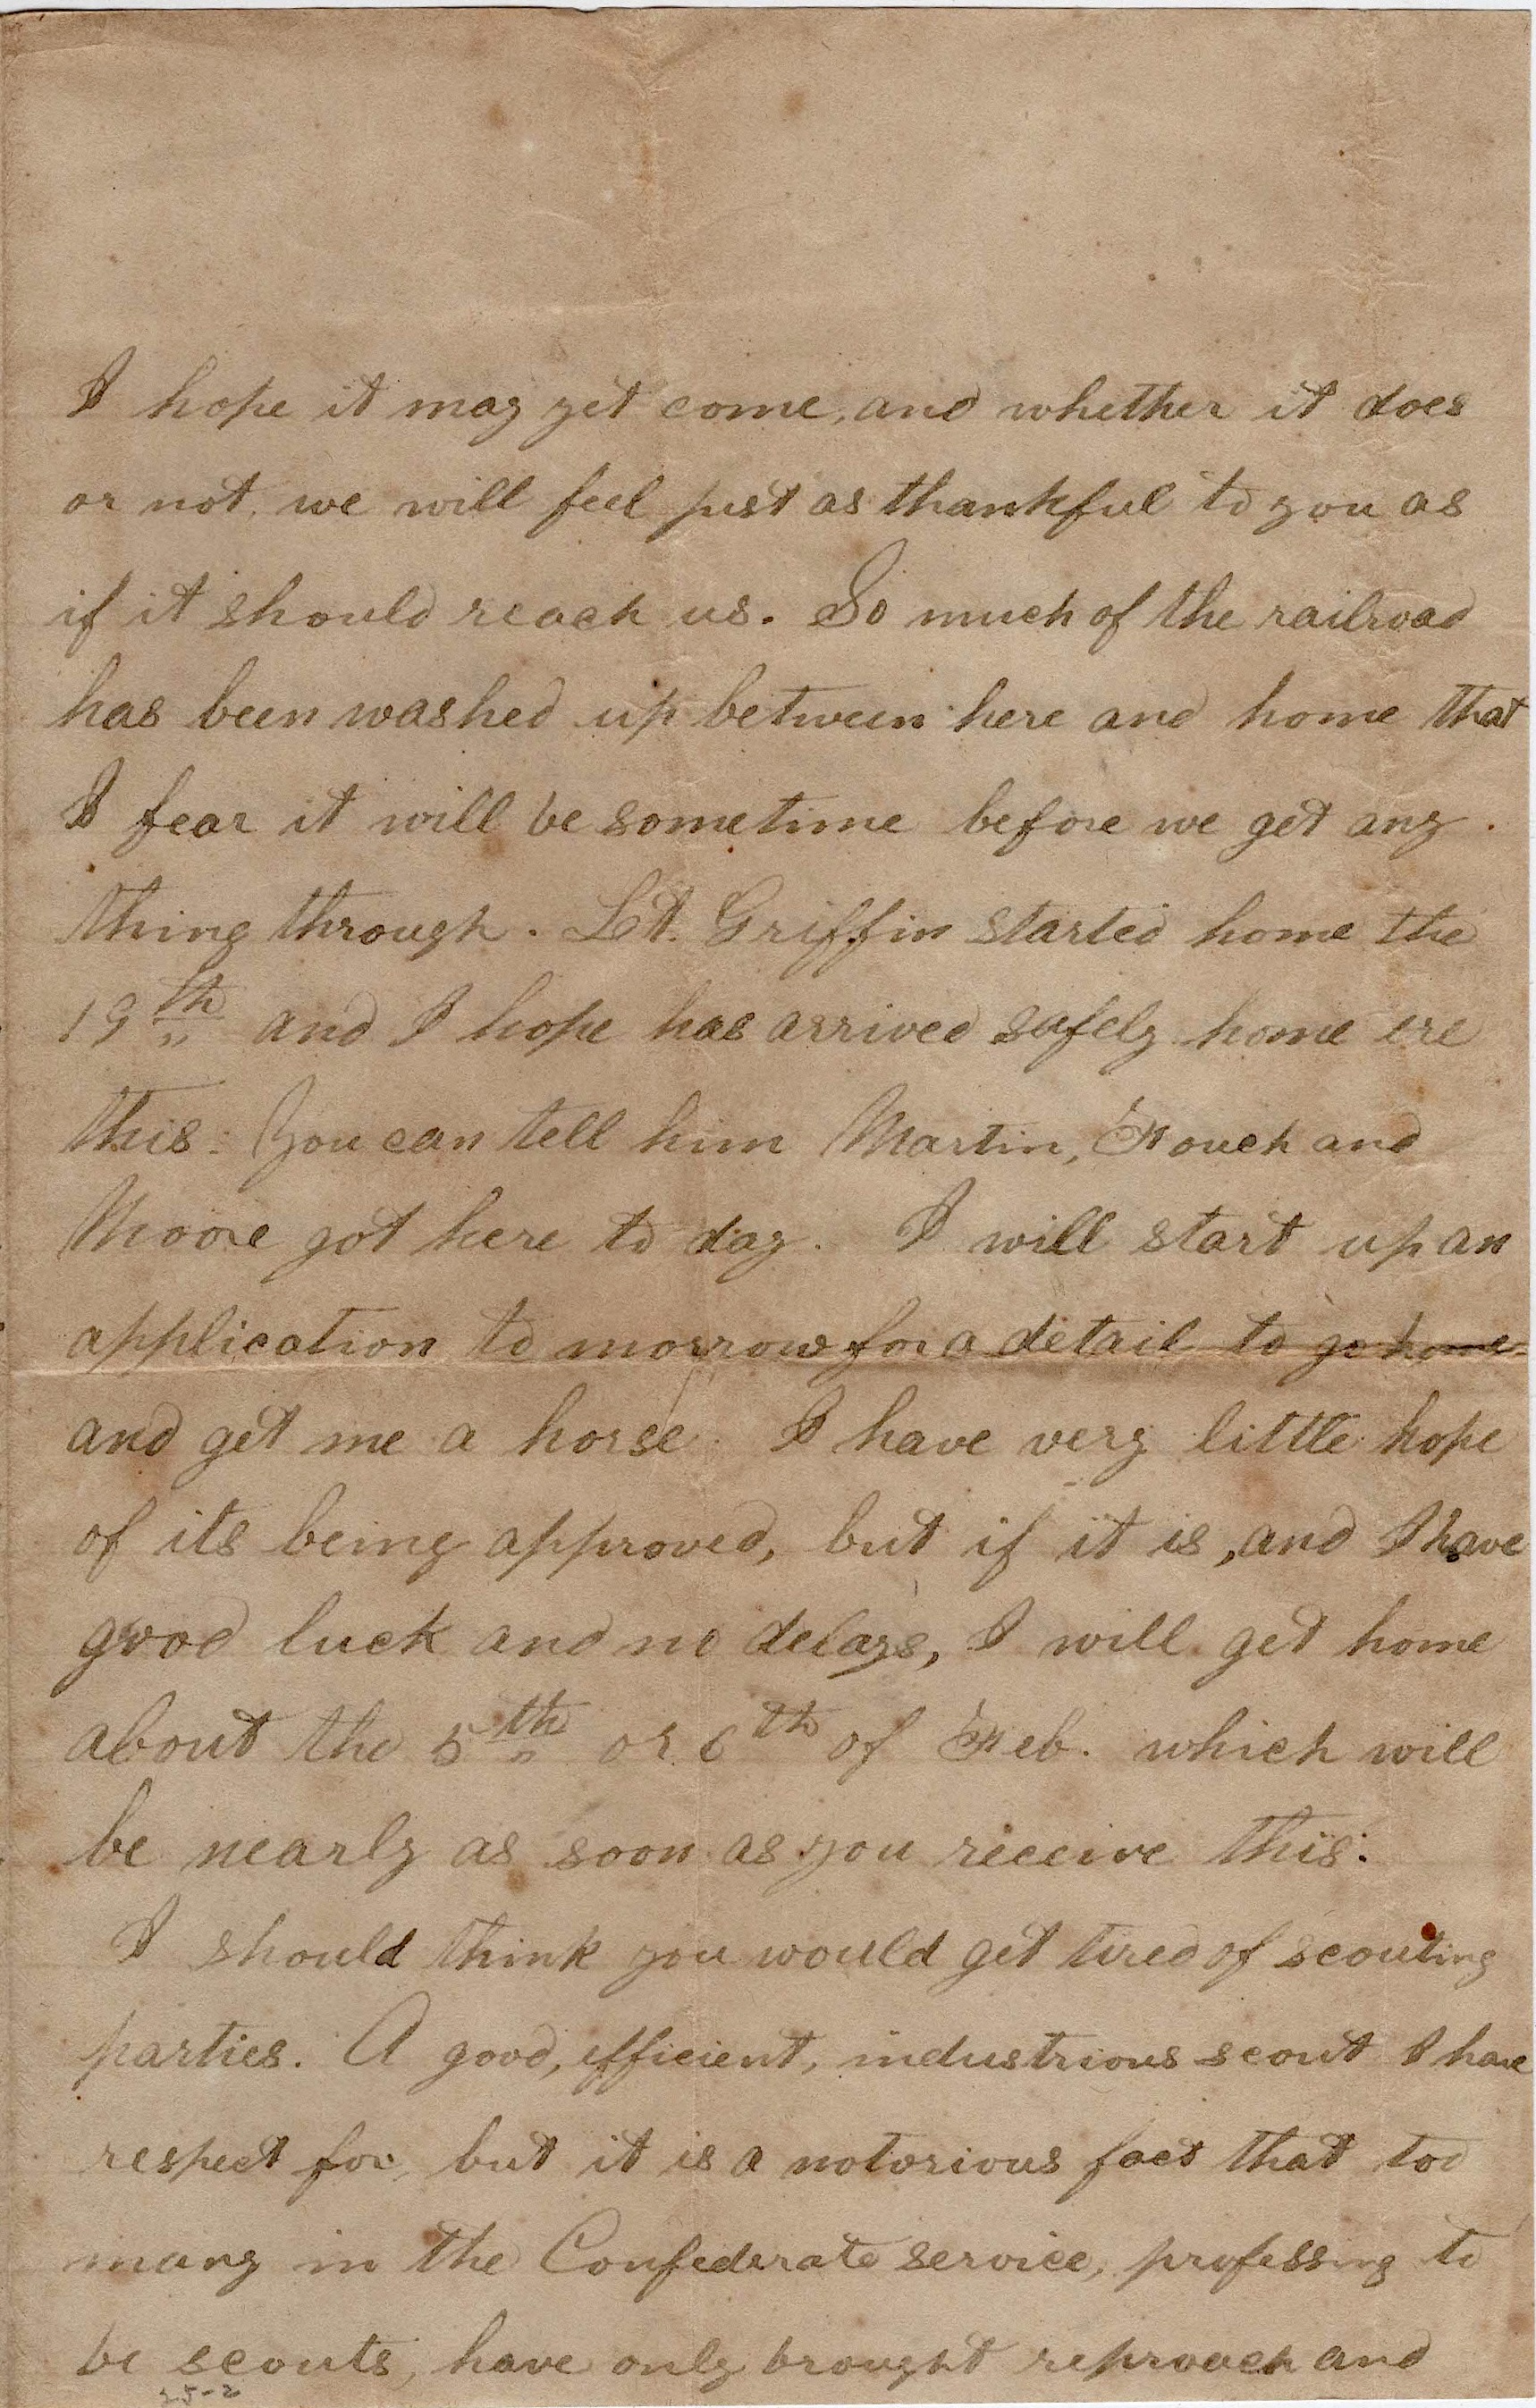 I hope it may yet come, and whether it does
or not, we will feel just as thankful to you as
if it should reach us. So much of the railroad
has been washed up between here and home that
I fear it will be sometime before we get any
thing through. Lt. Griffin started home the
19th and I hope has arrived safely home ere
this. You can tell him Martin, Fouch and
Moore got here to day. I will start up an
application to morrow for a detail to go home
and get me a horse. I have very little hope
of its being approved, but if it is, and I have
good luck and no delays, I will get home
about the 5th or 6th of Feb. which will
be nearly as soon as you receive this.
I should think you would get tired of scouting
parties. A good, efficient, industrious scout I have
respect for, but it is a notorious fact that too
many in the Confederate service, professing to
be scouts, have only brought reproach and
25-2